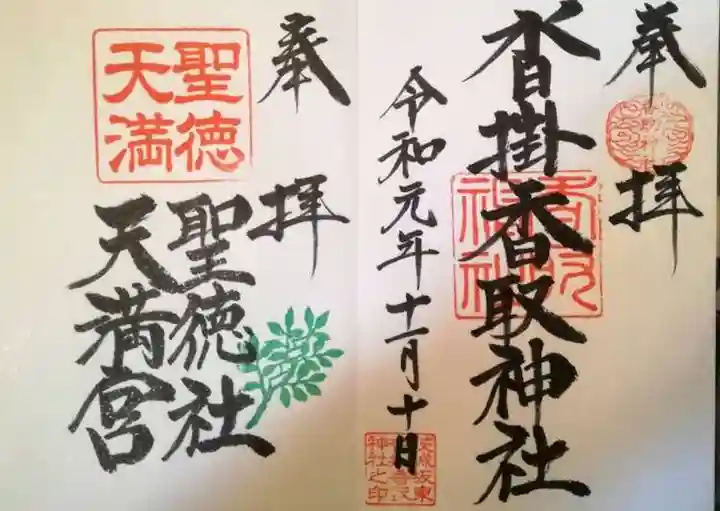 奉拝
沓掛香取神社
令和元年十一月十日
奉拝
聖徳社
天満宮
聖徳
天満
香取
神社
神社之印